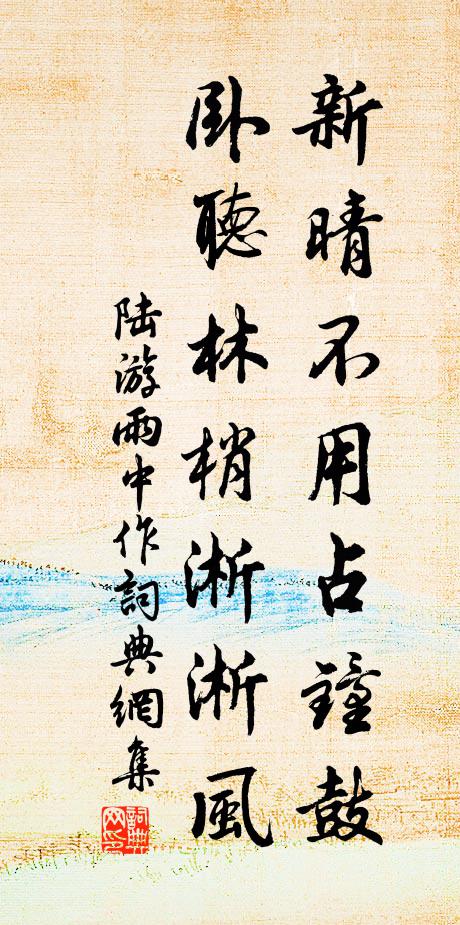 新晴不用占鐘鼓
臥聽林梢淅淅風
陸游雨中作詞典網集
詞典網印